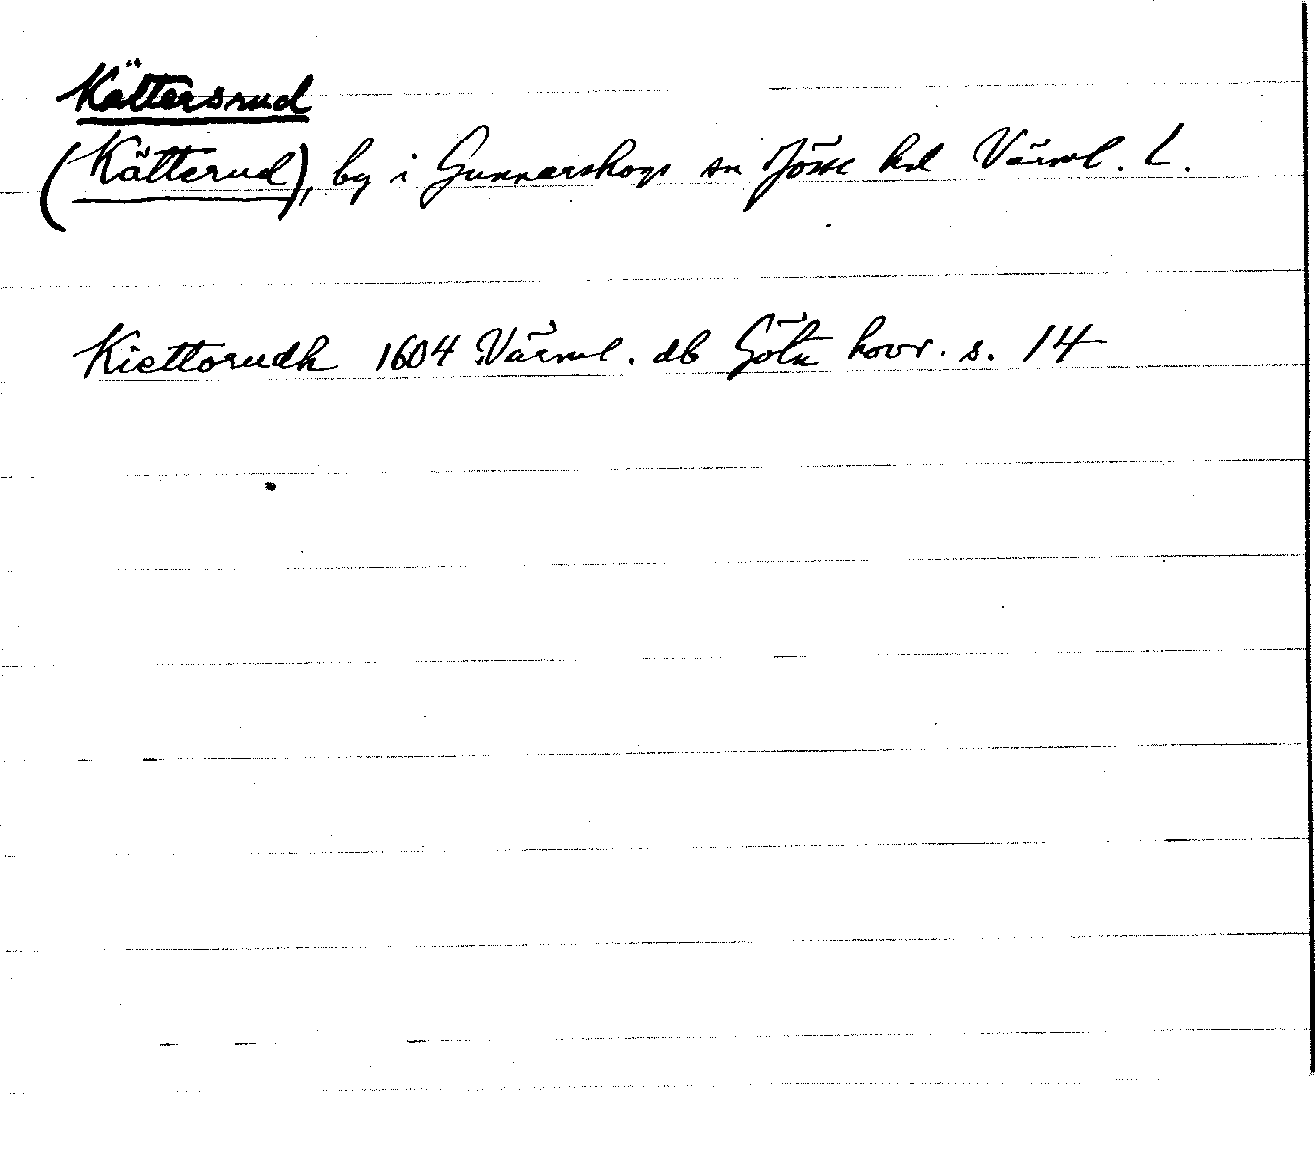 Kättersrud
(Kätterud), by i Gunnarskogs sn Jösse hd Värml. L.
Kiettorudh 1604 Värml. db Göta hovr. s. 14